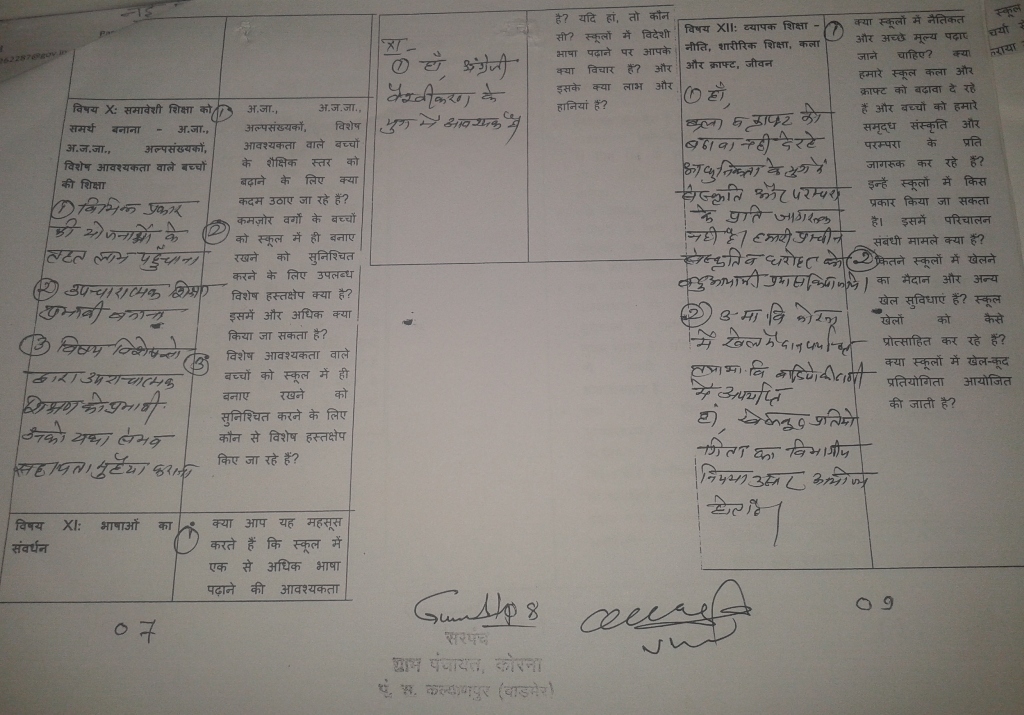 विषय X: समावेशी शिक्षा को
समर्थ बनाना - अ.जा.,
अ.ज.जा., अल्पसंख्यकों,
विशेष आवश्यकता वाले बच्चों
की शिक्षा
① विभिन्न प्रकार
की योजनाओं के
तहत लाभ पहुँचाना
② उपचारात्मक शिक्षा
प्रभावी बनाना
③ विषय विशेषज्ञों
द्वारा उपचारात्मक
शिक्षण को प्रभावी
यथा संभव
सहायता मुहैया कराना
① अ.जा., अ.ज.जा.,
अल्पसंख्यकों, विशेष
आवश्यकता वाले बच्चों
के शैक्षिक स्तर को
बढ़ाने के लिए क्या
कदम उठाए जा रहे हैं?
② कमज़ोर वर्गों के बच्चों
को स्कूल में ही बनाए
रखने को सुनिश्चित
करने के लिए उपलब्ध
विशेष हस्तक्षेप क्या है?
इसमें और अधिक क्या
किया जा सकता है?
③ विशेष आवश्यकता वाले
बच्चों को स्कूल में ही
बनाए रखने को
सुनिश्चित करने के लिए
कौन से विशेष हस्तक्षेप
किए जा रहे हैं?
विषय XI: भाषाओं का
संवर्धन
① क्या आप यह महसूस
करते हैं कि स्कूल में
एक से अधिक भाषा
पढ़ाने की आवश्यकता
07
XI -
① हाँ, अंग्रेजी
वैश्वीकरण के
युग में आवश्यक है
है? यदि हां, तो कौन
सी? स्कूलों में विदेशी
भाषा पढ़ाने पर आपके
क्या विचार हैं? और
इसके क्या लाभ और
हानियां हैं?
सरपंच
ग्राम पंचायत, कोरना
पं. स. कल्याणपुर (बाडमेर)
विषय XII: व्यापक शिक्षा -
नीति, शारीरिक शिक्षा, कला
और क्राफ्ट, जीवन
① हाँ,
कला व क्राफ्ट को
बढावा नही दे रहे
आधुनिकता के युग में
संस्कृति और परम्परा
के प्रति जागरूक
नही है। हमारी प्राचीन
संस्कृतिक धरोहर के
② उ मा वि कोरना
में खेल मैदान पर्याप्त
में अपर्याप्त
हां, खेलकूद प्रतियो
गिता का विभागीय
नियमानुसार आयोजन
होता है।
① क्या स्कूलों में नैतिकत
और अच्छे मूल्य पढ़ाए
जाने चाहिए? क्या
हमारे स्कूल कला और
क्राफ्ट को बढ़ावा दे रहे
हैं और बच्चों को हमारे
समृद्ध संस्कृति और
परम्परा के प्रति
जागरूक कर रहे हैं?
इन्हें स्कूलों में किस
प्रकार किया जा सकता
है। इसमें परिचालन
संबंधी मामले क्या हैं?
② कितने स्कूलों में खेलने
का मैदान और अन्य
खेल सुविधाएं हैं? स्कूल
खेलों को कैसे
प्रोत्साहित कर रहे हैं?
क्या स्कूलों में खेल-कूद
प्रतियोगिता आयोजित
की जाती है?
09
स्कूल